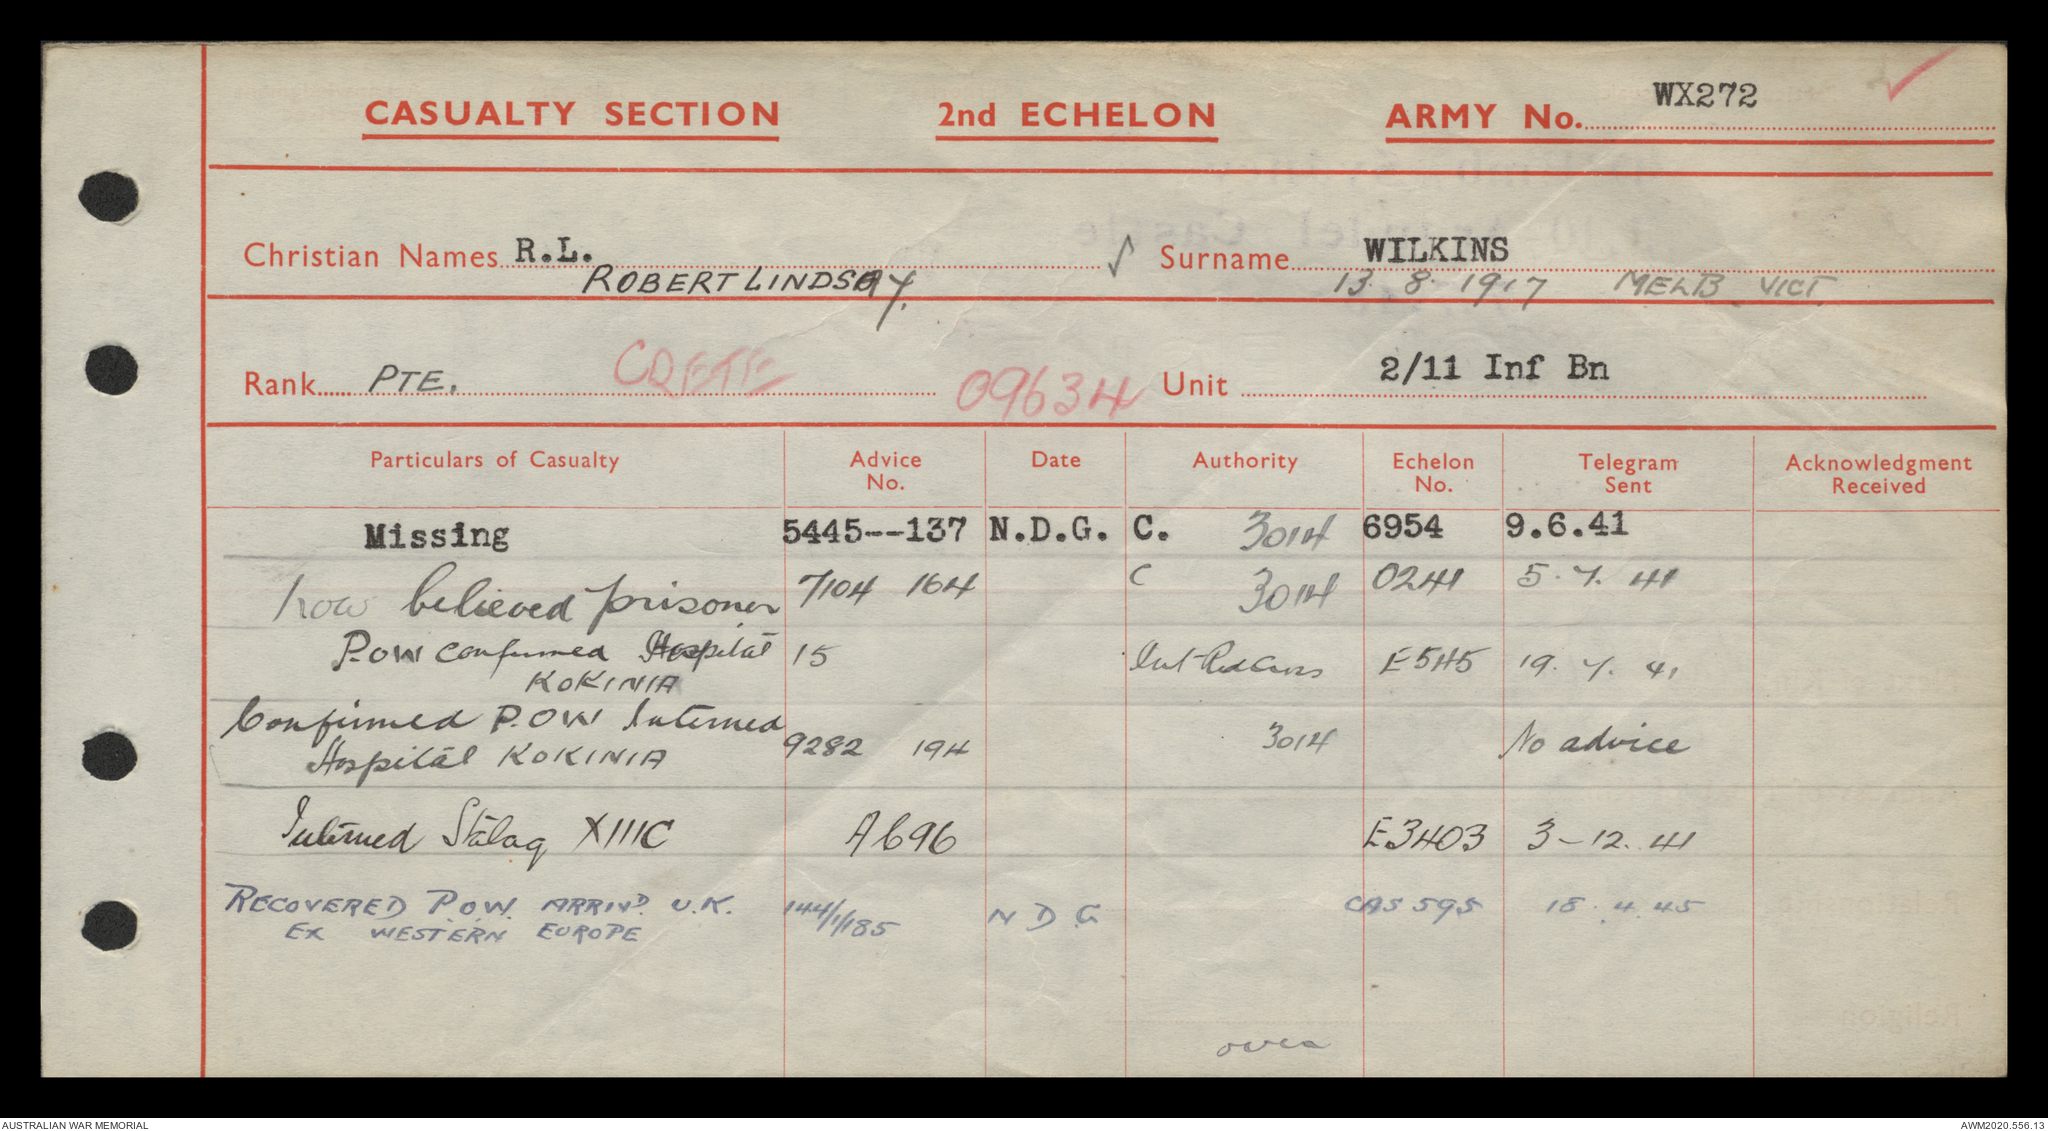 CASUALTY SECTION 2nd ECHELON ARMY No. WX272
Christian Names R.L. Surname WILKINS
ROBERT LINDSAY. 13. 8. 1917 MELB VICT.
Rank PTE. CRETE 09634 Unit 2/11 Inf Bn
Particulars of Casualty Advice No. Date Authority Echelon No. Telegram Sent Acknowledgment Received
Missing 5445--137 N.D.G. C. 3014 6954 9.6.41
now believed prisoner 7104 164 C 3014 0241 5.7.41
P.O.W confirmed Hospital 15 Int Red Cross E545 19.7.41
KOKINIA
Confirmed P.O.W Interned
Hospital KOKINIA 9282 194 3014 No advice
Interned Stalag XIIIC A696 E3403 3-12.41
RECOVERED P.O.W. ARRIVD. U.K. 144/1/185 N D G CAS 595 18.4.45
EX WESTERN EUROPE
over
AUSTRALIAN WAR MEMORIAL AWM2020.556.13